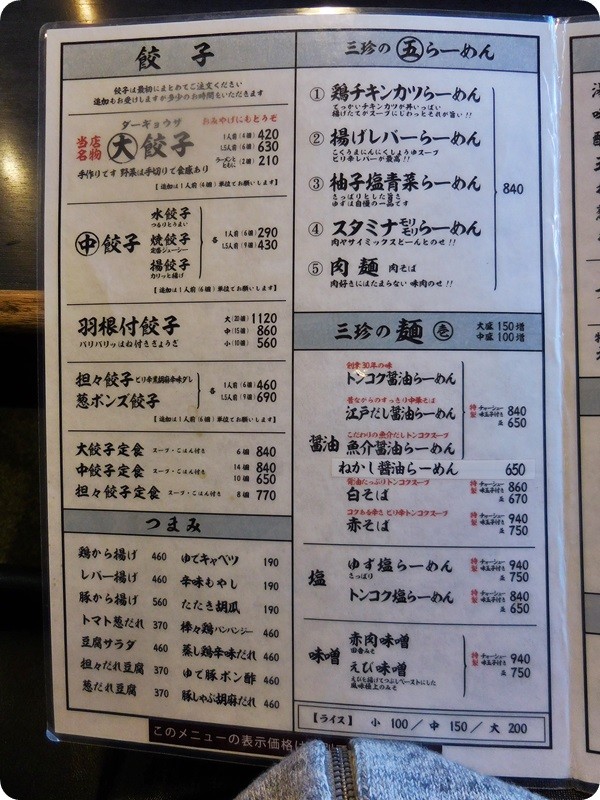 餃子
餃子は最初にまとめてご注文ください
追加もお受けしますが多少のお時間をいただきます
ダーギョウザ おみやげにもどうぞ
当店名物 大餃子
1人前(4個) 420
1.5人前(6個) 630
ラーメンとともに(2個) 210
手作りです 野菜は手切りで食感あり
【追加は1人前(4個)単位でお願いします】
中餃子
水餃子
つるりとうまい
焼餃子
定番ジューシー
揚餃子
カリッと揚げ
各 1人前(6個) 290
1.5人前(9個) 430
【追加は1人前(6個)単位でお願いします】
羽根付餃子
パリパリッはね付きぎょうざ
大(20個) 1120
中(15個) 860
小(10個) 560
担々餃子 ピリ辛黒胡麻辛味ダレ
葱ポンズ餃子
各 1人前(6個) 460
1.5人前(9個) 690
【追加は1人前(6個)単位でお願いします】
大餃子定食 スープ・ごはん付き 6個 840
中餃子定食 スープ・ごはん付き 14個 840
10個 650
担々餃子定食 スープ・ごはん付き 8個 770
つまみ
鶏から揚げ 460
レバー揚げ 460
豚から揚げ 560
トマト葱だれ 370
豆腐サラダ 460
担々だれ豆腐 370
葱だれ豆腐 370
ゆでキャベツ 190
辛味もやし 190
たたき胡瓜 190
棒々鶏バンバンジー 460
蒸し鶏辛味だれ 460
ゆで豚ポン酢 460
豚しゃぶ胡麻だれ 460
三珍の五らーめん
① 鶏チキンカツらーめん
でっかいチキンカツが丼いっぱい
揚げたてがスープにじわっとそれが旨い!!
② 揚げレバーらーめん
こくうまにんにくしょうゆスープ
ピリ辛レバーが最高!!
③ 柚子塩青菜らーめん
さっぱりとした旨さ
ゆずは自慢の一品です
④ スタミナモリモリらーめん
肉ヤサイミックスどーんとのせ!!
⑤ 肉麺 肉そば
肉好きにはたまらない 味肉のせ!!
840
三珍の麺 壱
大盛 150増
中盛 100増
醤油
創業30年の味
トンコク醤油らーめん
昔ながらのすっきり中華そば
江戸だし醤油らーめん
こだわりの魚介だしトンコクスープ
魚介醤油らーめん
特製 チャーシュー味玉子付き 840
並 650
ねかし醤油らーめん 650
背油たっぷりトンコクスープ
白そば
特製 チャーシュー味玉子付き 860
並 670
コクある辛さ ピリ辛トンコクスープ
赤そば
特製 チャーシュー味玉子付き 940
並 750
塩
ゆず塩らーめん
さっぱり
特製 チャーシュー味玉子付き 940
並 750
トンコク塩らーめん
特製 チャーシュー味玉子付き 840
並 650
味噌
赤肉味噌
田舎みそ
えび味噌
えびを揚げてつぶしペーストにした
風味極上のみそ
特製 チャーシュー味玉子付き 940
並 750
【ライス】 小 100／中 150／大 200
このメニューの表示価格は